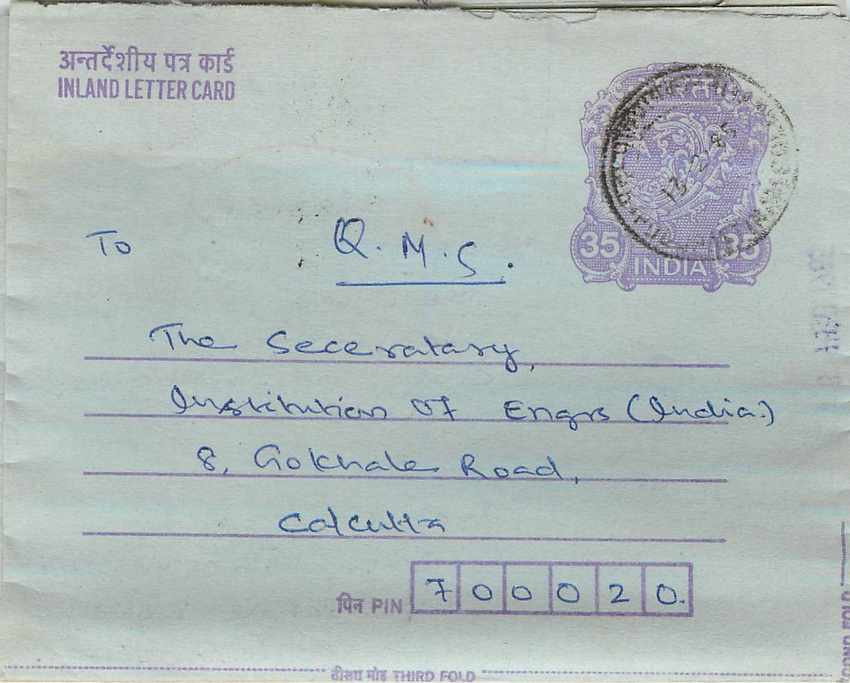 अन्तर्देशीय पत्र कार्ड
INLAND LETTER CARD
35 INDIA 35
13·2·85
To Q.M.S.
The Seceratary,
Institution of Engrs (India.)
8, Gokhale Road,
Calcutta
पिन PIN 700020.
तीसरा मोड़ THIRD FOLD
SECOND FOLD